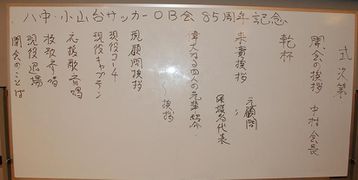 八中・小山台サッカーOB会 85周年記念
式次第
開会の挨拶 中村会長
乾杯
来賓挨拶 元顧問
保護者代表
偉大な四人の元輩紹介
〜挨拶
現顧問挨拶
現役コーチ 〃
現役キャプテン 〃
元旗歌斉唱
校歌斉唱
現役退場
閉会のことば